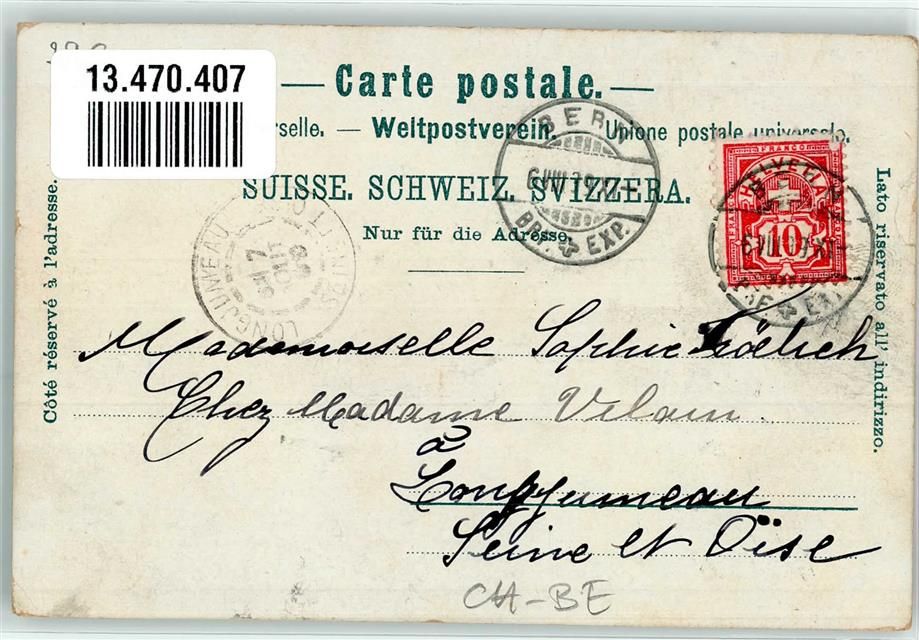 13.470.407
— Carte postale. —
rselle. — Weltpostverein. — Unione postale universale.
SUISSE. SCHWEIZ. SVIZZERA.
Nur für die Adresse.
Côté réservé à l'adresse.
Lato riservato all' indirizzo.
BERN
BRF. EXP.
FRANCO
HELVETIA
10
BRF. EXP.
LONGJUMEAU
Mademoiselle Sophie
Chez Madame Velain.
à
Longjumeau
Seine et Oise
CH-BE